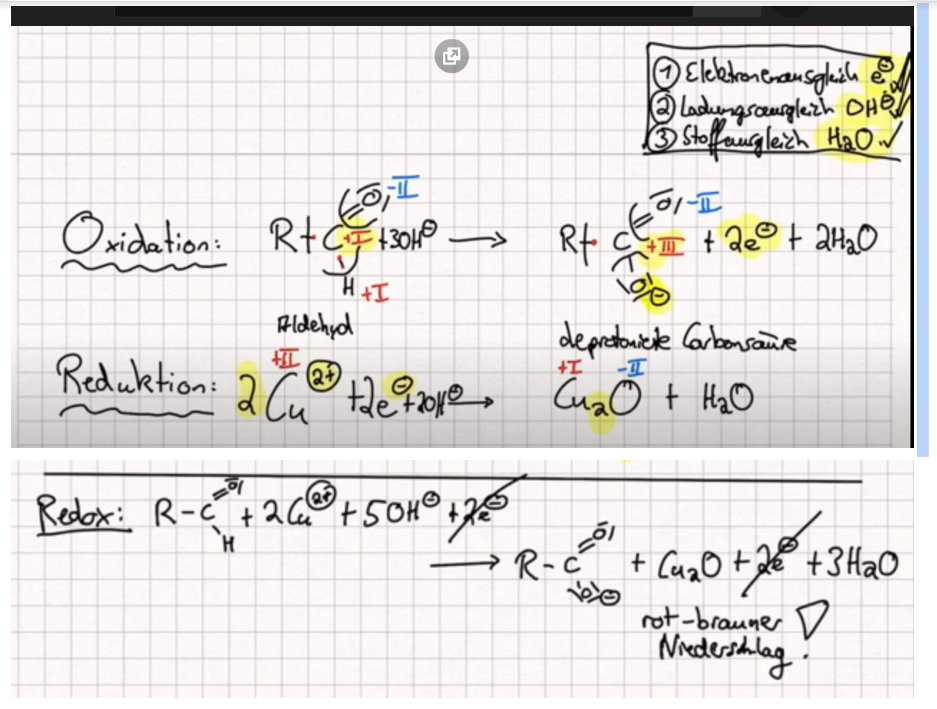 ① Elektronenausgleich e⊖ ✓
② Ladungsausgleich OH⊖ ✓
③ Stoffausgleich H₂O ✓
-II -II
Oxidation: R-C +I + 3OH⊖ → R-C +III + 2e⊖ + 2H₂O
O O
H +I O⊖
Aldehyd deprotonierte Carbonsäure
+II +I -II
Reduktion: 2Cu²⁺ + 2e⊖ + 2OH⊖ → Cu₂O + H₂O
O
Redox: R-C + 2Cu²⁺ + 5OH⊖ + 2e⊖
H
O
→ R-C + Cu₂O + 2e⊖ + 3H₂O
O⊖
rot-brauner
Niederschlag!